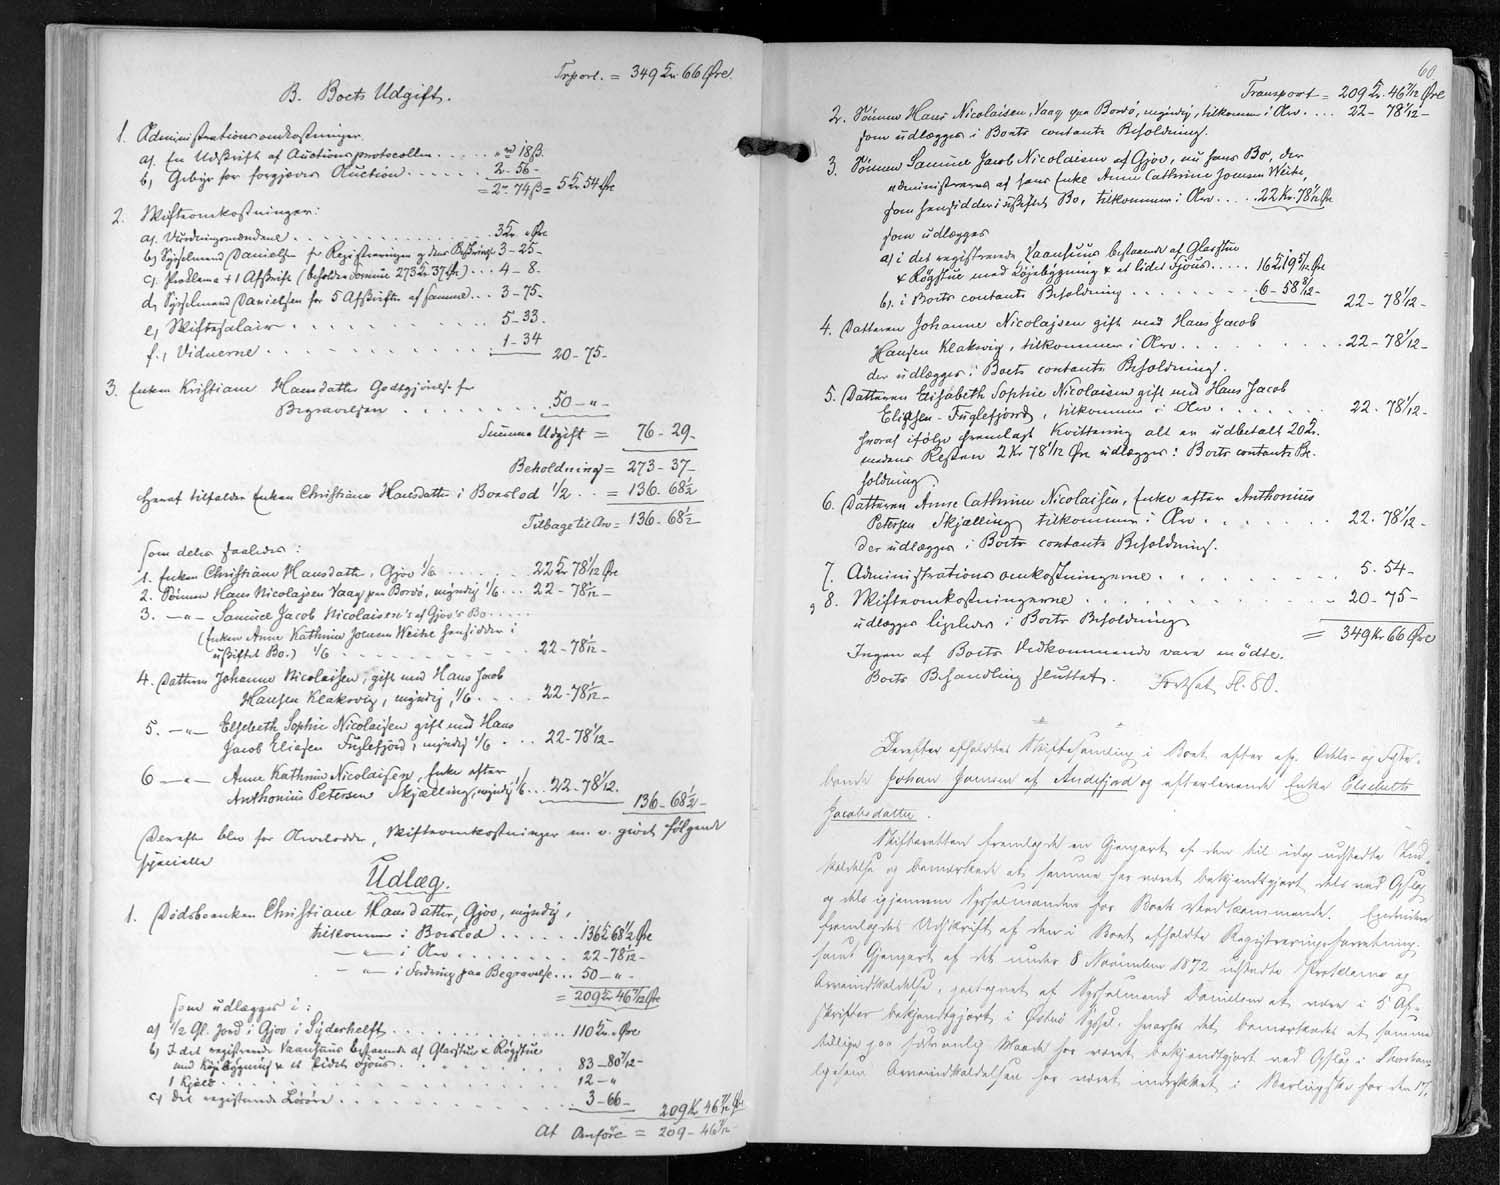 Trport. = 349 Kr. 66 Øre.
B. Boets Udgift.
1. Administrationsomkostninger
a). En Udskrift af Auctionsprotocollen ..... " rd 18 ß.
b, Gebyr for forgjæves Auction ...... 2 - 56 -
= 2 - 74 ß = 5 Kr 54 Øre
2. Skifteomkostninger:
a). Vurderingsmændene ........ 3 Kr. " Øre
b) Sysselmand Danielsen for Registreringen og dens Beskrivelse 3 - 25 -
c). Proklama + 1 Afskrift (beholden Formue 273 Kr. 37 Øre) ... 4 - 8 -
d, Sysselmand Danielsen for 5 Afskrifter af samme ... 3 - 75 -
e) Skiftesalair ........ 5 - 33 -
f., Vidnerne ........ 1 - 34
20 - 75 -
3. Enken Kristiane Hansdatter Godtgjørelse for
Begravelsen ........ 50 - " -
Summa Udgift = 76 - 29 -
Beholdning = 273 - 37 -
Heraf tilfalder Enken Christiane Hansdatter i Boeslod 1/2 .. = 136 - 68 1/2
Tilbage til Arv = 136 - 68 1/2 -
som deles saaledes:
1. Enken Christiane Hansdatter, Gjov 1/6 ...... 22 Kr 78 1/12 Øre
2. Sønnen Hans Nicolajsen Vaag paa Bordö, myndig 1/6 ... 22 - 78 1/12 -
3. - " - Samuel Jacob Nicolaisen's af Gjov's Bo ....
(Enken Anne Kathrine Joensen Weihe hensidder i
uskiftet Bo.) 1/6 ........ 22 - 78 1/12 -
4. Datteren Johanne Nicolaisen, gift med Hans Jacob
Hansen Klaksvig, myndig, 1/6 .... 22 - 78 1/12 -
5. - " - Elsebeth Sophie Nicolaisen gift med Hans
Jacob Eliasen Fuglefjord, myndig 1/6 ... 22 - 78 1/12 -
6 - " - Anne Kathrine Nicolaisen, Enke efter
Anthonius Petersen Skjælling, myndig 1/6 ... 22 - 78 1/12.
136 - 68 1/2 -
Derefter blev for Arvelodder, Skifteomkostninger m. v. gjort følgende
specielle
Udlæg.
1. Dödsboenken Christiane Hansdatter, Gjov, myndig,
tilkommer i Boeslod ...... 136 Kr 68 1/2 Øre
- " - i Arv ........ 22 - 78 1/12 -
- " - i Fordring paa Begravelse ... 50 - " -
= 209 Kr 46 7/12 Øre
som udlægges i:
a) 1/2 Gl. Jord i Gjov i Syderhelft ........ 110 Kr " Øre
b) I det registrerede Vaanhuus bestaaende af Glasstue & Røgstue
med Højebygning & et lidet Fjöus ........ 83 - 80 7/12 -
1 Kjeld ........ 12 - "
c) det registrerede Lösöre ........ 3 - 66 -
209 Kr 46 7/12 Øre
At Anføre = 209 - 46 7/12 -
60
Transport = 209 Kr. 46 7/12 Øre
2. Sønnen Hans Nicolaisen, Vaag paa Bordö, myndig, tilkommer i Arv .... 22 - 78 1/12 -
som udlægges i Boets contante Beholdning.
3. Sønnen Samuel Jacob Nicolaisen af Gjov, nu hans Bo, der
administreres af hans Enke Anne Cathrine Joensen Weihe,
som hensidder i uskiftet Bo, tilkommer i Arv ..... 22 Kr. 78 1/12 Øre
som udlægges
a) i det registrerede Vaanhuus bestaaende af Glasstue
& Røgstue med Højebygning & et lidet Fjöus ..... 16 Kr 19 5/12 Øre
b). i Boets contante Beholdning ........ 6 - 58 8/12 -
22 - 78 1/12 -
4. Datteren Johanne Nicolajsen gift med Hans Jacob
Hansen Klaksvig, tilkommer i Arv ........ 22 - 78 1/12 -
der udlægges i Boets contante Beholdning.
5. Datteren Elisabeth Sophie Nicolaisen gift med Hans Jacob
Eliasen - Fuglefjord, tilkommer i Arv ...... 22 - 78 1/12 -
hvoraf ifølge fremlagt Kvittering alt er udbetalt 20 Kr.
medens Resten 2 Kr 78 1/12 Øre udlægges i Boets contante Be-
holdning.
6. Datteren Anne Cathrine Nicolaisen, Enke efter Anthonius
Petersen Skjælling tilkommer i Arv ........ 22 - 78 1/12 -
der udlægges i Boets contante Beholdning.
7. Administrationsomkostningerne ........ 5 - 54 -
8. Skifteomkostningerne ........ 20 - 75 -
udlægges ligeledes i Boets Beholdning
= 349 Kr 66 Øre
Ingen af Boets Vedkommende vare mödte.
Boets Behandling sluttet. Fortsat fl. 80.
Derefter afholdtes Skiftesamling i Boet efter afg. Odels- og Fæste-
bonde Johan Joensen af Andefjord og efterlevende Enke Elsebeth
Jacobsdatter.
Skifteretten fremlagde en Gjenpart af den til idag udstedte Ind-
kaldelse og bemærkede at samme har været bekjendtgjort dels ved Opslag
og dels igjennem Sysselmanden for Boets Vedkommende. Endvidere
fremlagdes Udskrift af den i Boet afholdte Registreringsforretning
samt Gjenpart af det under 8 November 1872 udstedte Proklama og
Arveindkaldelse, paategnet af Sysselmand Danielsen at være i 5 Af-
skrifter bekjendtgjort i Østerø Syssel, hvorhos det bemærkedes at samme
tillige paa sædvanlig Maade har været bekjendtgjort ved Opslag i Thorshavn
ligesom Arveindkaldelsen har været indrykket i Berlingske for den 17,